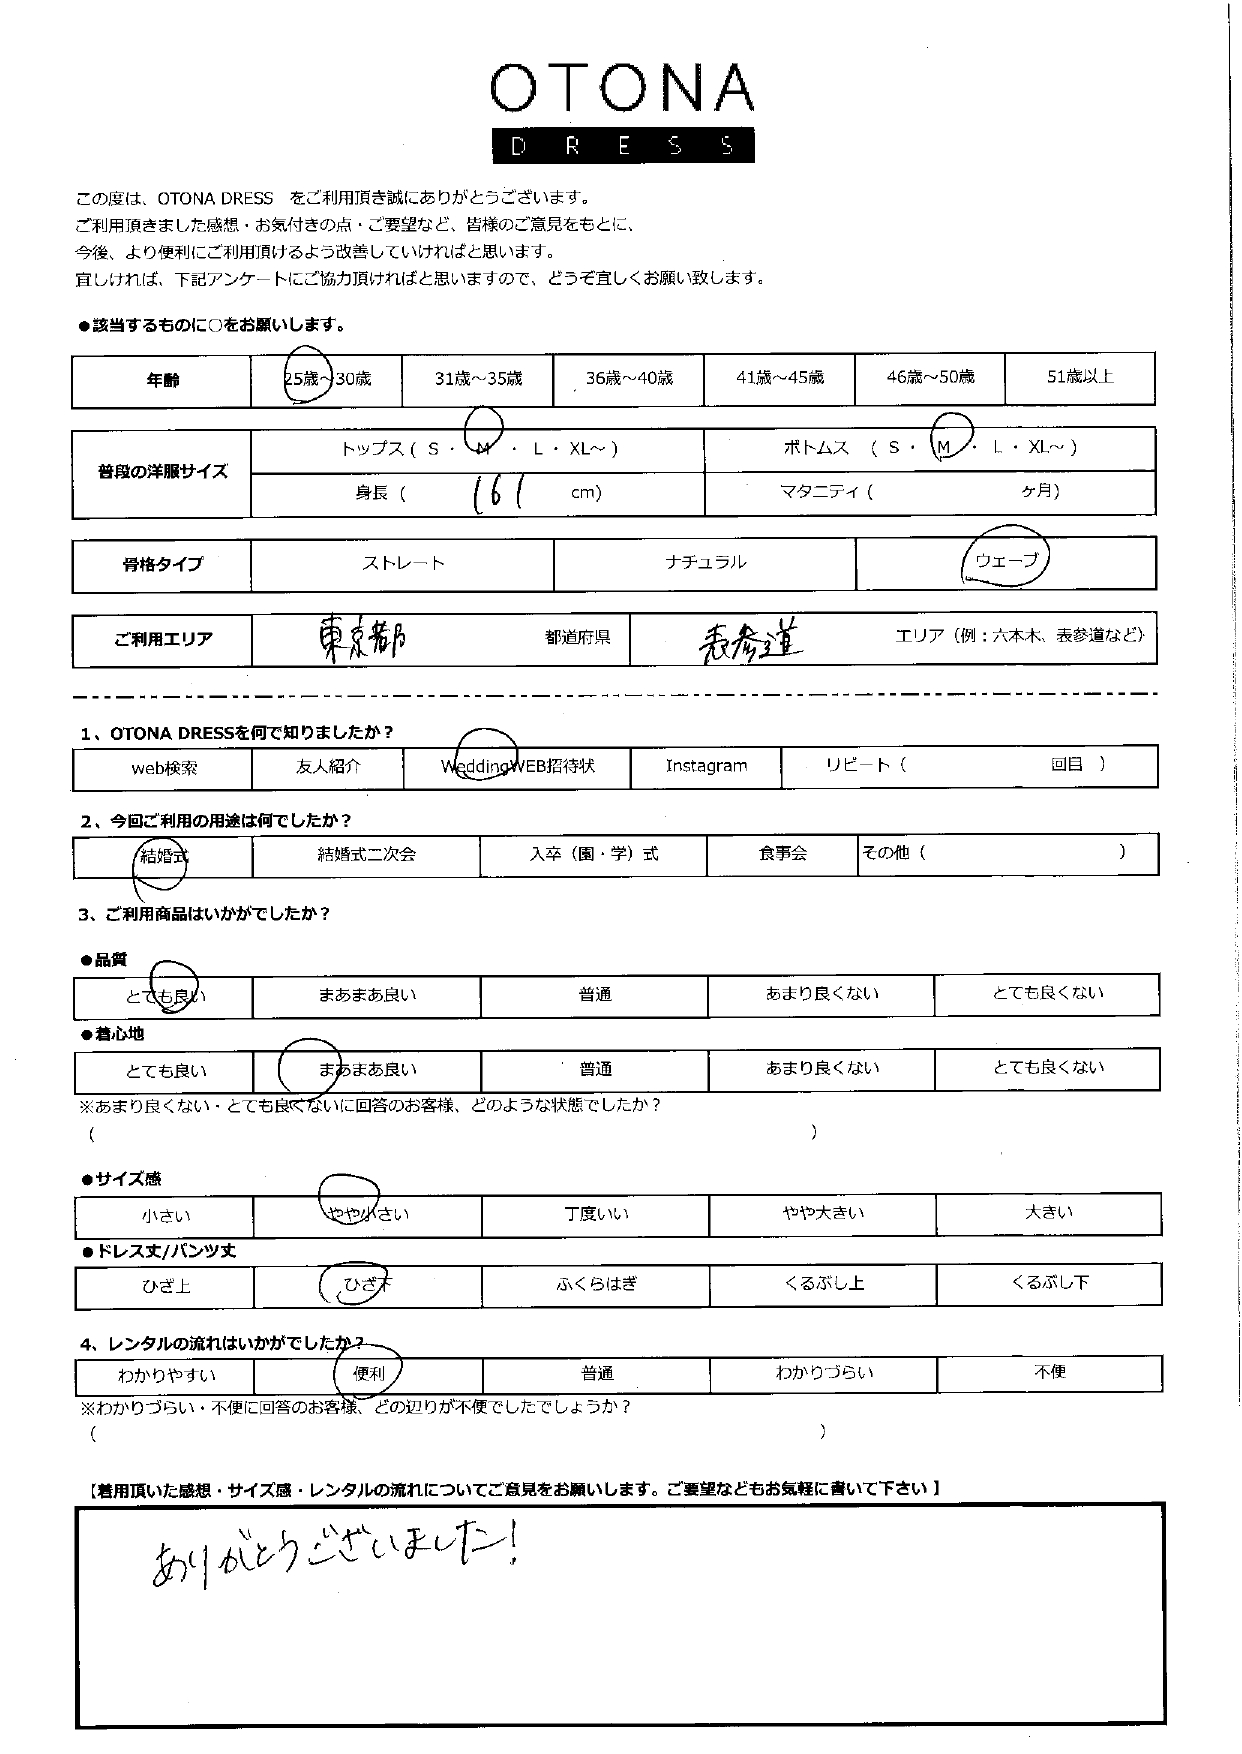 OTONA
DRESS
この度は、OTONA DRESS　をご利用頂き誠にありがとうございます。
ご利用頂きました感想・お気付きの点・ご要望など、皆様のご意見をもとに、
今後、より便利にご利用頂けるよう改善していければと思います。
宜しければ、下記アンケートにご協力頂ければと思いますので、どうぞ宜しくお願い致します。
●該当するものに○をお願いします。
年齢 25歳～30歳 31歳～35歳 36歳～40歳 41歳～45歳 46歳～50歳 51歳以上
普段の洋服サイズ トップス ( S ・ M ・ L ・ XL～ ) ボトムス ( S ・ M ・ L ・ XL～ )
身長 ( 161 cm) マタニティ ( ヶ月)
骨格タイプ ストレート ナチュラル ウェーブ
ご利用エリア 東京都 都道府県 表参道 エリア（例：六本木、表参道など）
1、OTONA DRESSを何で知りましたか？
web検索 友人紹介 WeddingWEB招待状 Instagram リピート（ 回目 ）
2、今回ご利用の用途は何でしたか？
結婚式 結婚式二次会 入卒（園・学）式 食事会 その他（ ）
3、ご利用商品はいかがでしたか？
●品質
とても良い まあまあ良い 普通 あまり良くない とても良くない
●着心地
とても良い まあまあ良い 普通 あまり良くない とても良くない
※あまり良くない・とても良くないに回答のお客様、どのような状態でしたか？
( )
●サイズ感
小さい やや小さい 丁度いい やや大きい 大きい
●ドレス丈/パンツ丈
ひざ上 ひざ下 ふくらはぎ くるぶし上 くるぶし下
4、レンタルの流れはいかがでしたか？
わかりやすい 便利 普通 わかりづらい 不便
※わかりづらい・不便に回答のお客様、どの辺りが不便でしたでしょうか？
( )
【着用頂いた感想・サイズ感・レンタルの流れについてご意見をお願いします。ご要望などもお気軽に書いて下さい】
ありがとうございました！